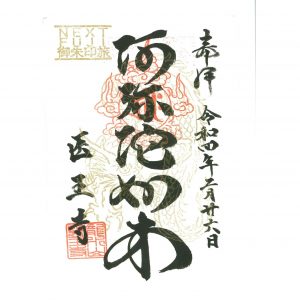 奉拝 令和四年二月廿六日
阿弥陀如来
NEXT
FUJI
御朱印旅
医王寺